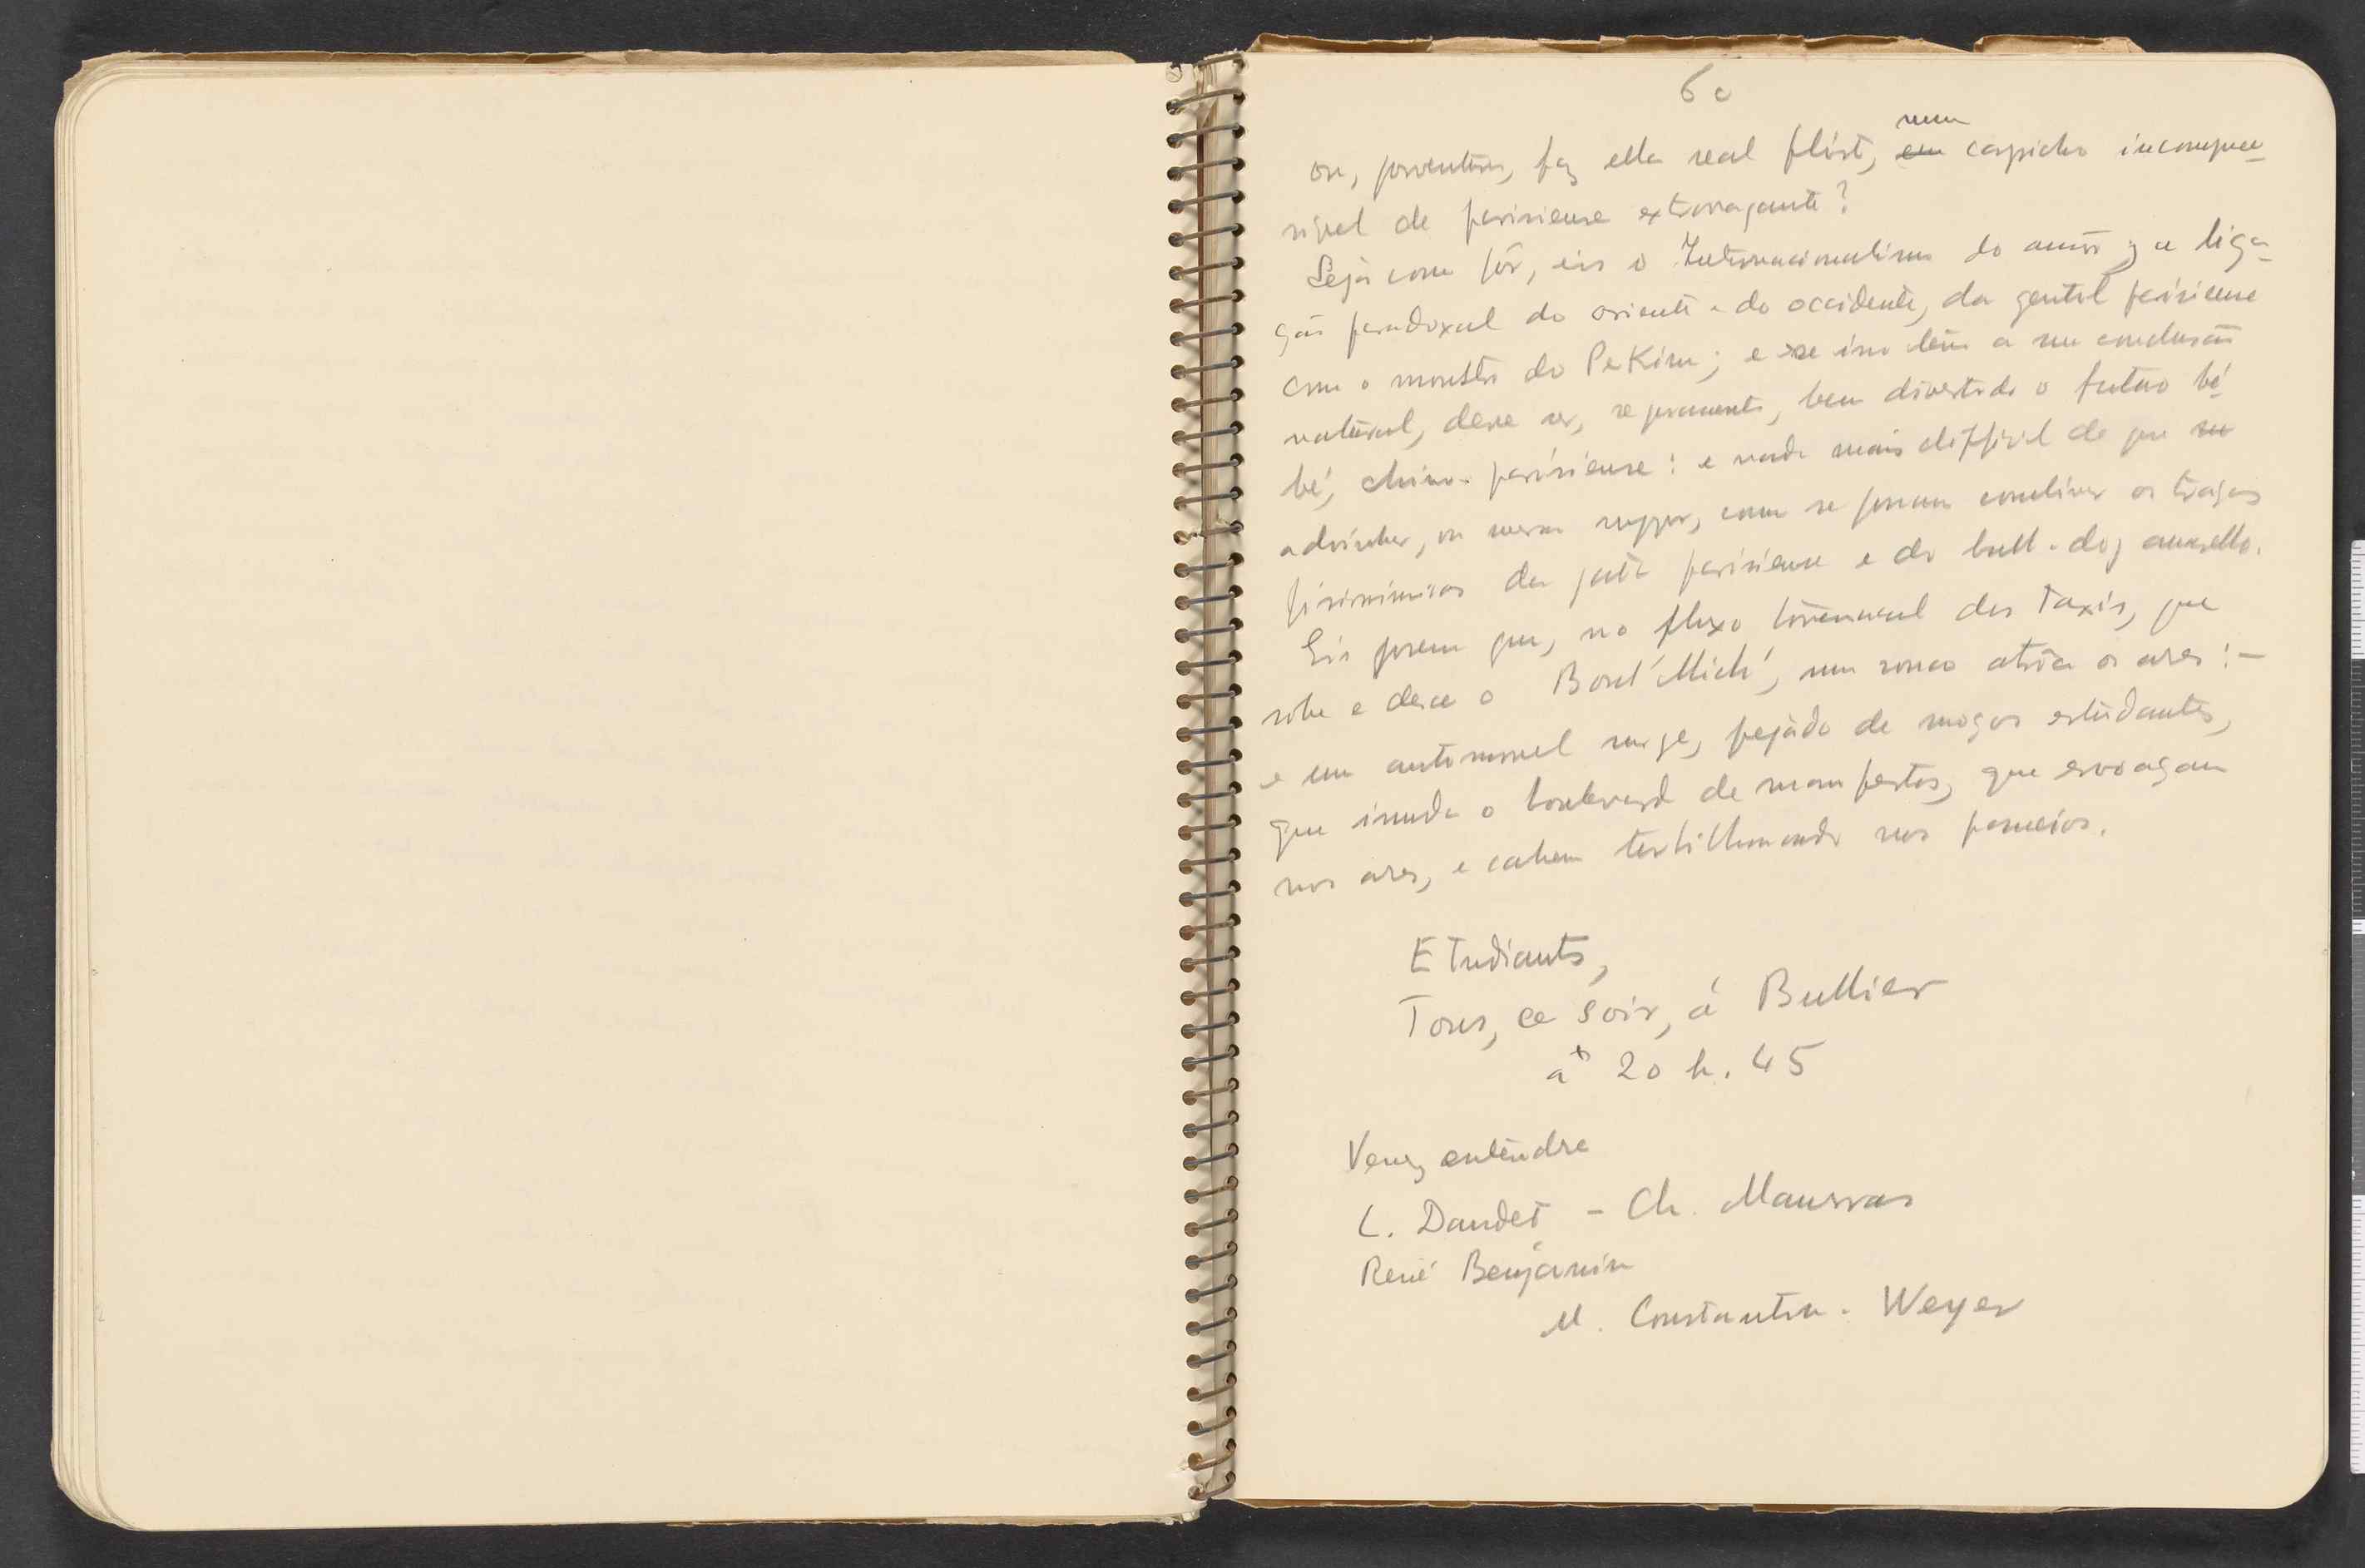 60
ou, porventura, faz ella real flirt, ~~em~~ num caspicho incompree-
sivel de parisiense extravagante?
Seja como fôr, eis o Internacionalismo do amôr; a liga-
ção paradoxal do oriente e do occidente, da gentil parisiense
com o monstro do Pekim; e se isso têm a sua conclusão
natural, deve ser, seguramente, bem divertido o futuro bé-
bé, chino-parisiense: e nada mais difficil de que
adivinhar, ou mesmo suppor, como se possam conciliar os traços
fisionimicos da gata parisiense e do bull-dog amarello.
Eis porem que, no fluxo torrencial dos Taxis, que
sobe e desce o Boul' Mich', um ronco atrôa os ares:-
e um automovel surge, pejado de moços estudantes,
que inunda o boulevard de manifestos, que esvoaçam
nos ares, e cahem turbilhonando nos passeios.
Etudiants,
Tous, ce soir, á Bullier
à 20 h. 45
Venez entendre
L. Daudet - Ch. Maurras
René Benjamin
M. Constantin-Weyer